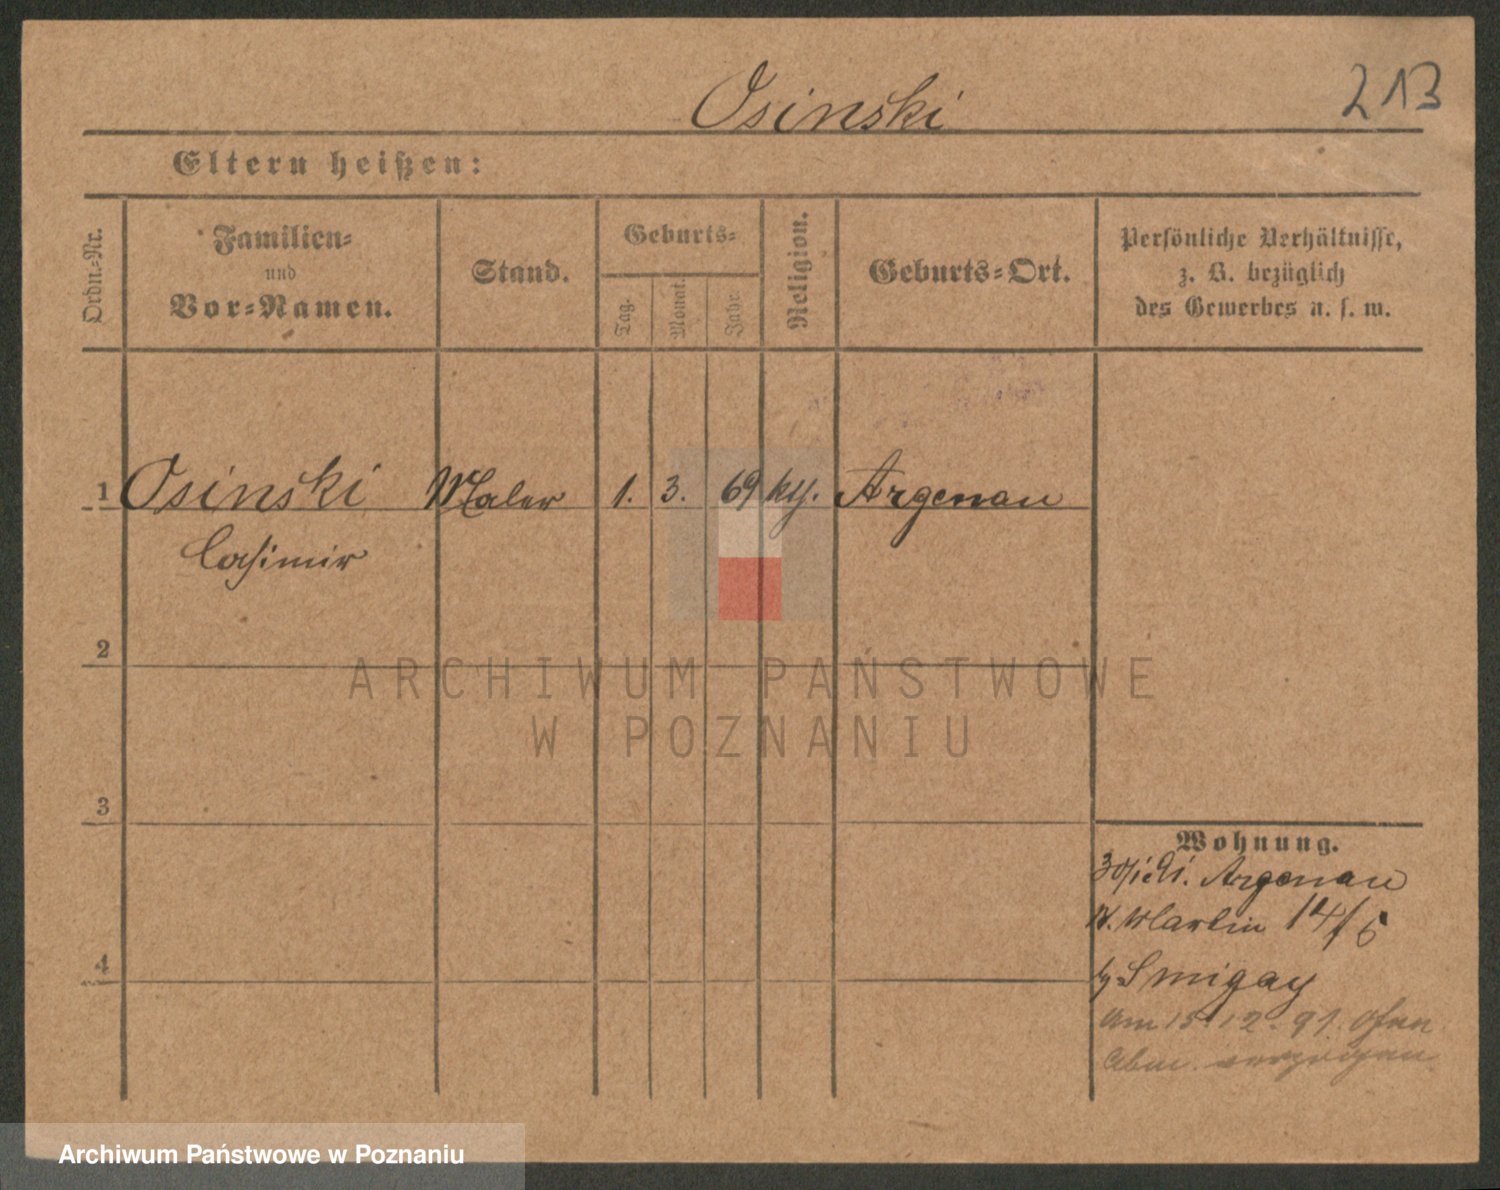 213
Osinski
Eltern heißen:
Ordn.-Nr.
Familien-
und
Vor-Namen.
Stand.
Geburts-
Tag.
Monat.
Jahr.
Religion.
Geburts-Ort.
Persönliche Verhältnisse,
z. B. bezüglich
des Gewerbes u. s. w.
1 Osinski Maler 1. 3. 69 Argenau
Casimir
2
3
4
Wohnung.
Argenau
Martin 14/5
Smigay
Am 15.12.91. Ofen
Abm.
ARCHIWUM PAŃSTWOWE
W POZNANIU
Archiwum Państwowe w Poznaniu